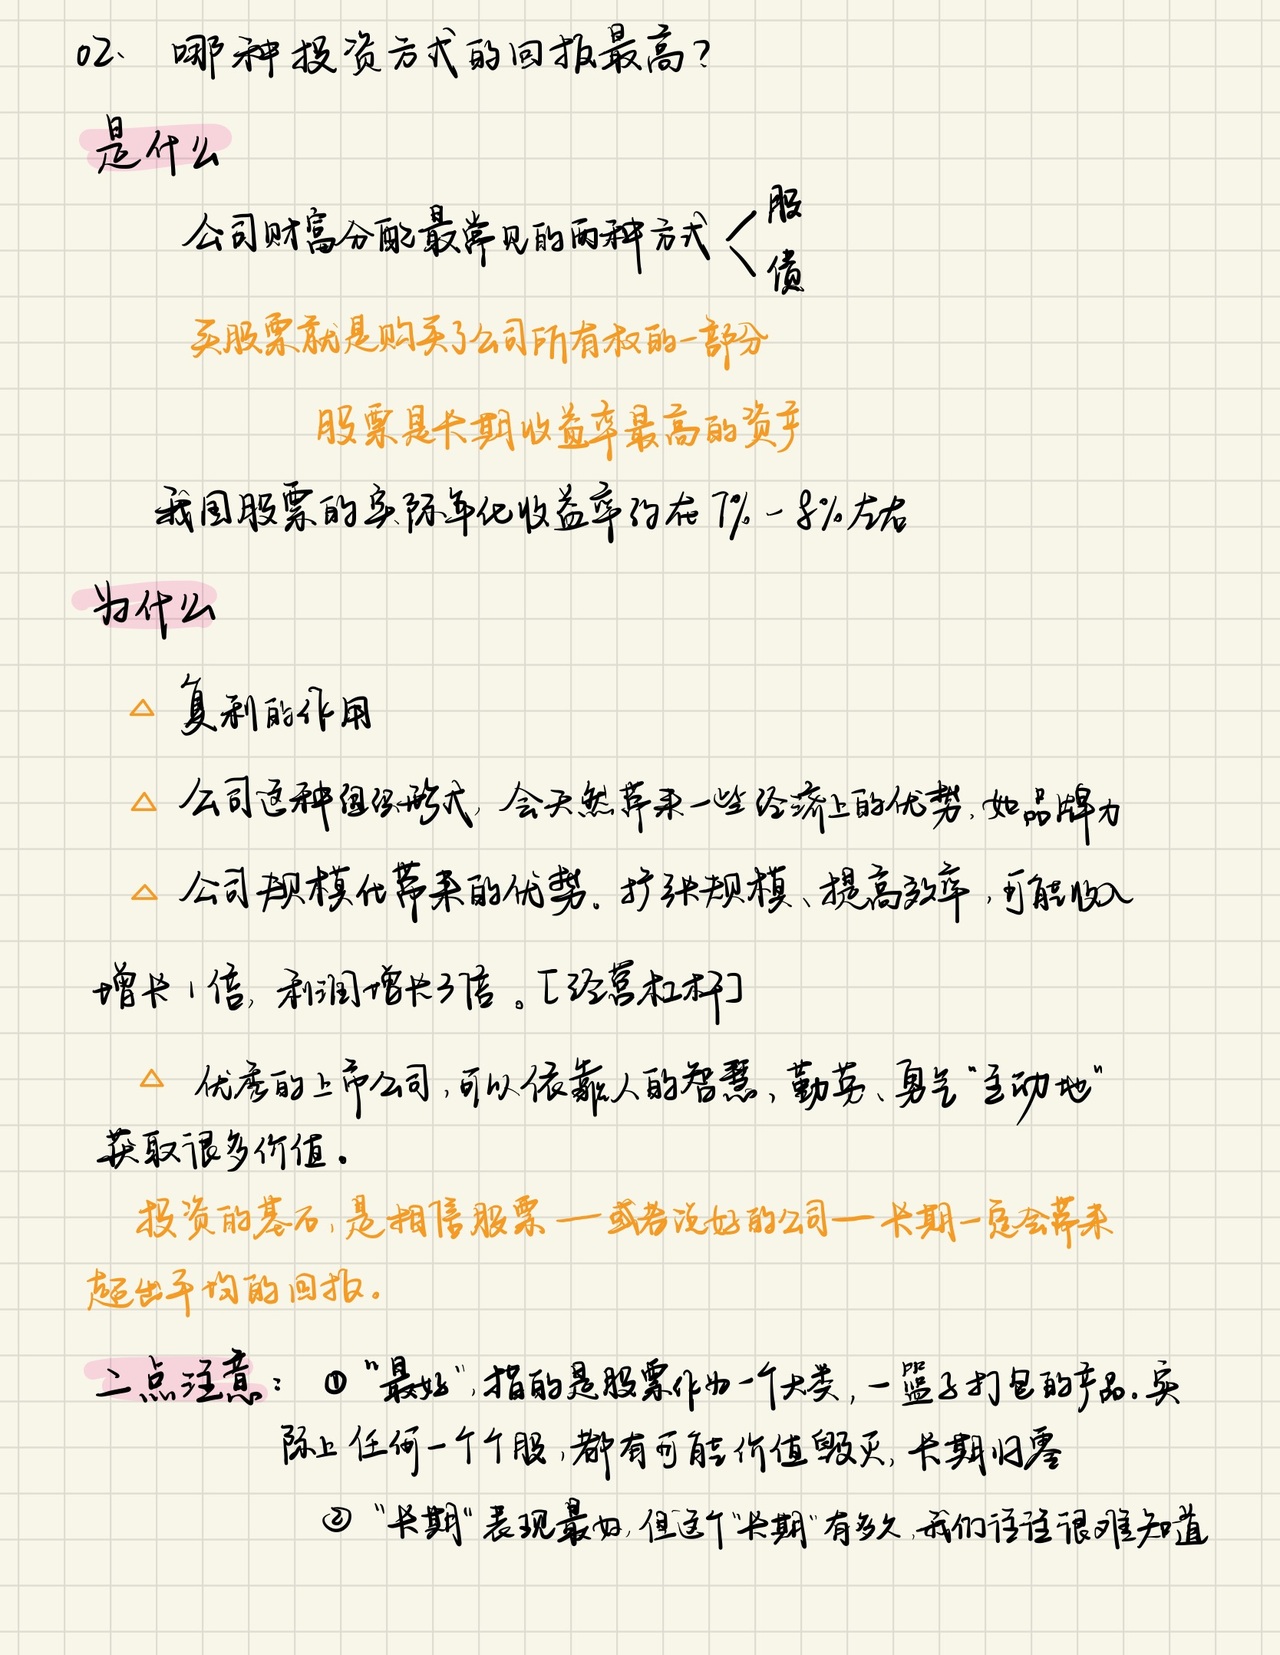 02、哪种投资方式的回报最高？
是什么
公司财富分配最常见的两种方式 < 股
债
买股票就是购买了公司所有权的一部分
股票是长期收益率最高的资产
我国股票的实际年化收益率约在7%-8%左右
为什么
△ 复利的作用
△ 公司这种组织形式，会天然带来一些经济上的优势，如品牌力
△ 公司规模化带来的优势。扩张规模、提高效率，可能收入
增长1倍，利润增长3倍。[经营杠杆]
△ 优秀的上市公司，可以依靠人的智慧，勤劳、勇气“主动地”
获取很多价值。
投资的基石，是相信股票一或者说好的公司一长期一定会带来
超出平均的回报。
二点注意：① “最好”，指的是股票作为一个大类，一篮子打包的产品。实
际上任何一个个股，都有可能价值毁灭，长期归零
② “长期”表现最好，但这个“长期”有多久，我们往往很难知道